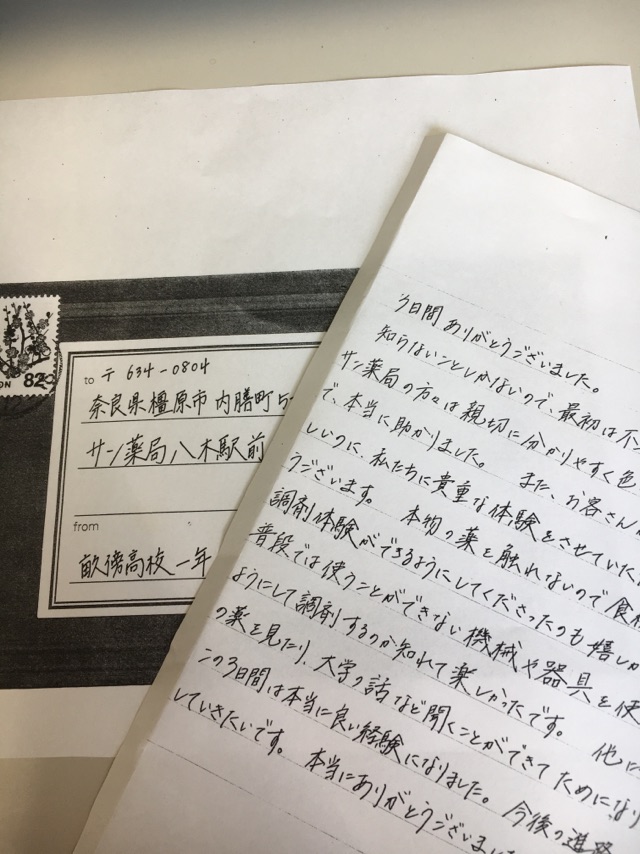 ON 82
to 〒 634-0804
奈良県橿原市内膳町5
サン薬局八木駅前
from
畝傍高校一年
3日間ありがとうございました。
知らないことしかないので、最初は不
サン薬局の方々は親切に分かりやすく色
で、本当に助かりました。 また、お客さんが
しいのに、私たちに貴重な体験をさせていた
うございます。 本物の薬を触れないので食
調剤体験ができるようにしてくださったのも嬉しか
普段では使うことができない機械や器具を使
ようにして調剤するのか知れて楽しかったです。 他に
の薬を見たり、大学の話など聞くことができてためにな
この3日間は本当に良い経験になりました。今後の進路
していきたいです。 本当にありがとうございまし